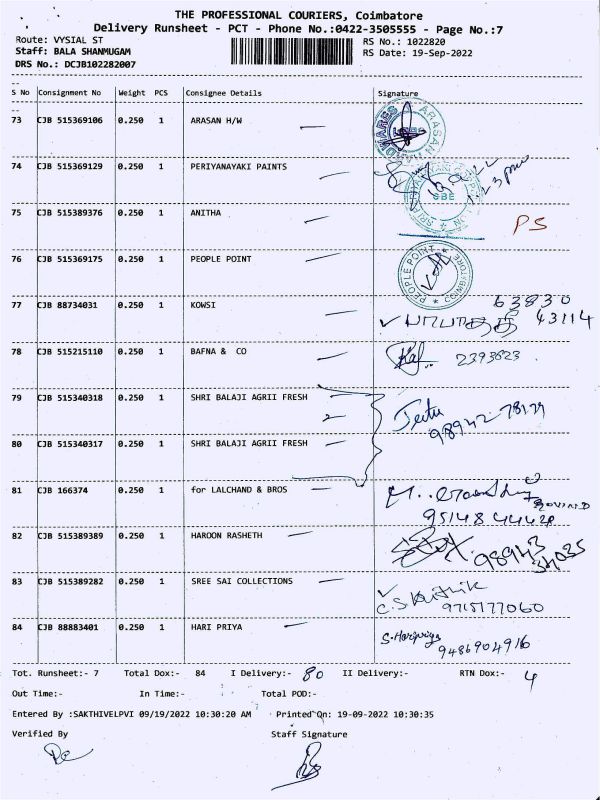 THE PROFESSIONAL COURIERS, Coimbatore
Delivery Runsheet - PCT - Phone No.:0422-3505555 - Page No.:7
Route: VYSIAL ST
RS No.: 1022820
Staff: BALA SHANMUGAM
RS Date: 19-Sep-2022
DRS No.: DCJB102282007
S No Consignment No Weight PCS Consignee Details Signature
73 CJB 515369106 0.250 1 ARASAN H/W
74 CJB 515369129 0.250 1 PERIYANAYAKI PAINTS
SBE
75 CJB 515389376 0.250 1 ANITHA PS
76 CJB 515369175 0.250 1 PEOPLE POINT
PEOPLE POINT
77 CJB 88734031 0.250 1 KOWSI 63830
43114
78 CJB 515215110 0.250 1 BAFNA & CO 2393623
79 CJB 515340318 0.250 1 SHRI BALAJI AGRII FRESH
80 CJB 515340317 0.250 1 SHRI BALAJI AGRII FRESH
81 CJB 166374 0.250 1 for LALCHAND & BROS
82 CJB 515389389 0.250 1 HAROON RASHETH
83 CJB 515389282 0.250 1 SREE SAI COLLECTIONS
9715177060
84 CJB 88883401 0.250 1 HARI PRIYA S.Haripriya
9486904916
Tot. Runsheet:- 7 Total Dox:- 84 I Delivery:- 80 II Delivery:- RTN Dox:- 4
Out Time:- In Time:- Total POD:-
Entered By :SAKTHIVELPVI 09/19/2022 10:30:20 AM Printed On: 19-09-2022 10:30:35
Verified By Staff Signature